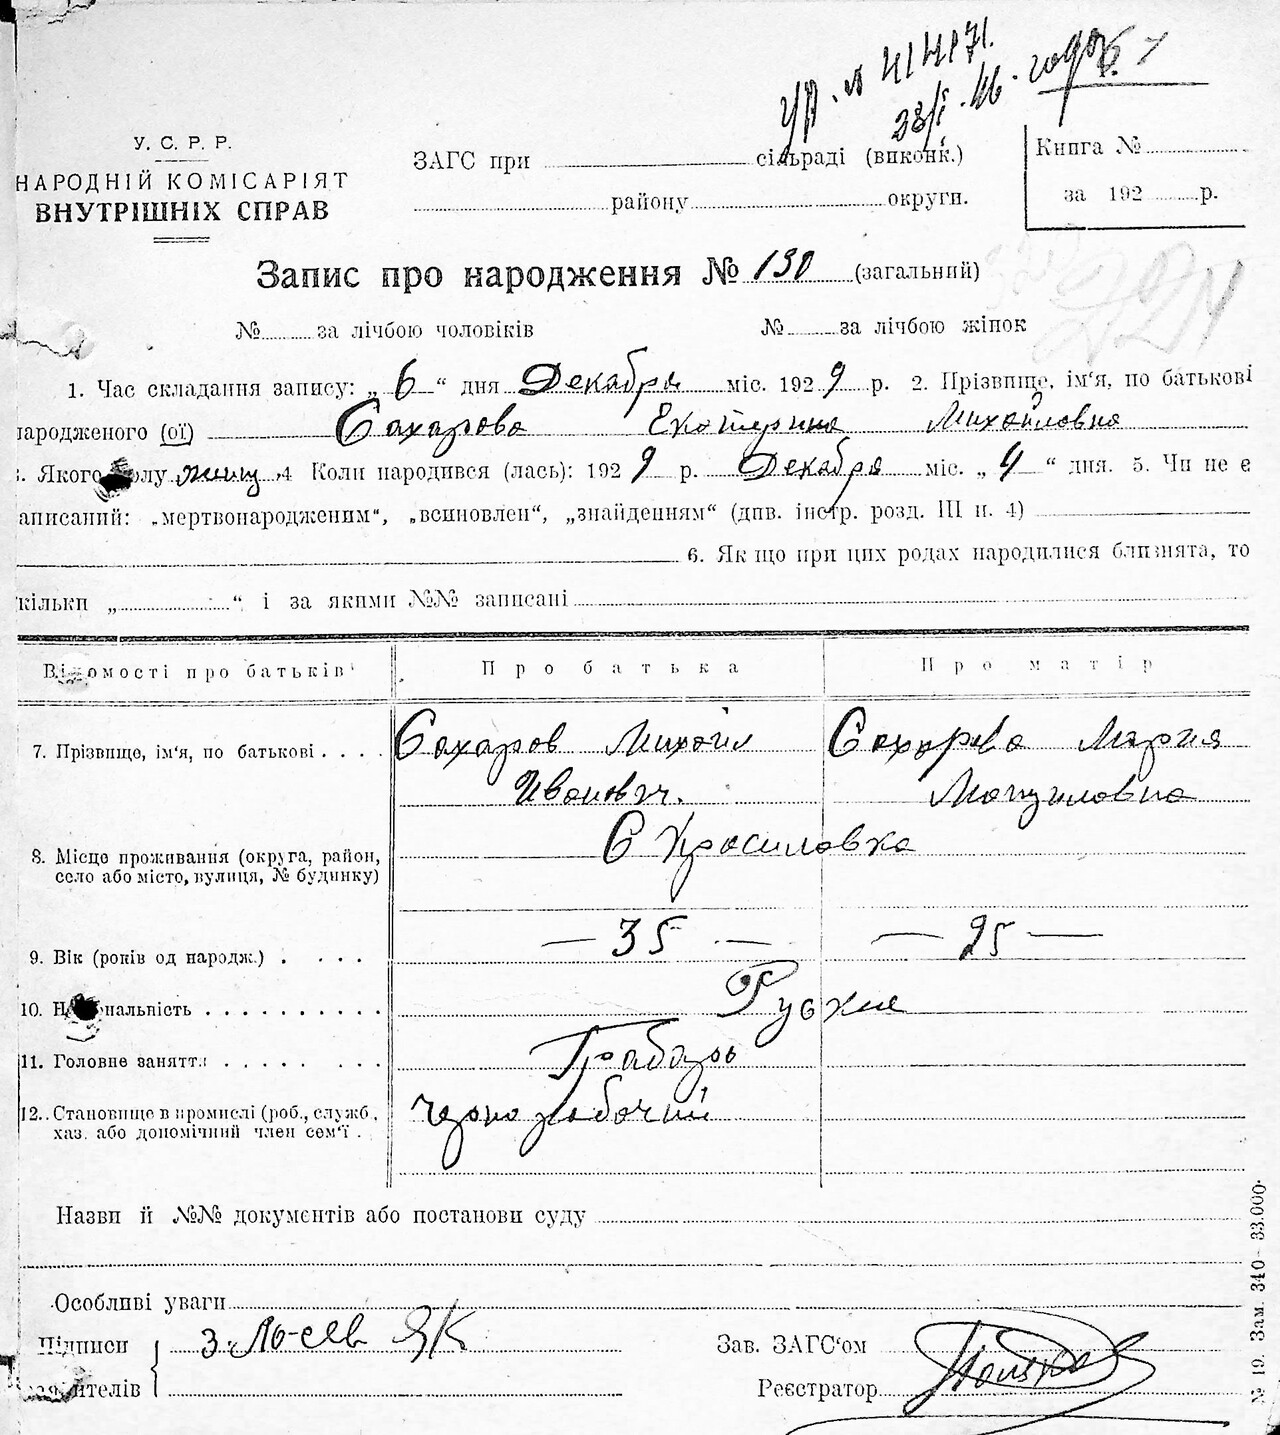 23/I. 46.
У. С. Р. Р.
НАРОДНІЙ КОМІСАРІЯТ
ВНУТРІШНІХ СПРАВ
ЗАГС при сільраді (виконк.)
району округи.
Книга №
за 192 р.
Запис про народження № 130 (загальний)
№ за лічбою чоловіків № за лічбою жінок
1. Час складання запису: „ 6 “ дня Декабря міс. 192 9 р. 2. Прізвище, ім'я, по батькові
народженого (ої) Сахарова Екатерина Михайловна
Якого полу женщ. 4 Коли народився (лась): 192 9 р. Декабря міс. „ 4 “ дня. 5. Чи не є
записаний: „мертвонародженим“, „всиновлен“, „знайденням“ (дпв. інстр. розд. III п. 4)
6. Як що при цих родах народилися близнята, то
кільки „ “ і за якими №№ записані
Відомості про батьків Про батька Про матір
7. Прізвище, ім'я, по батькові . . . . Сахаров Михаил Сахарова Мария
Иванович. Мануиловна
8. Місце проживання (округа, район,
село або місто, вулиця, № будинку) С Красиловка
9. Вік (років од народж.) . . . . — 35 — — 25 —
10. Національність . . . . . . . . . . Руские
11. Головне заняття . . . . . . . . Грабарь
12. Становище в промислі (роб., служб.,
хаз. або допомічний член сем'ї . чернорабочий
Назви й №№ документів або постанови суду
Особливі уваги
Підписи
заявителів
Зав. ЗАГС‘ом
Реєстратор
№ 19. Зам. 340 - 33.000.